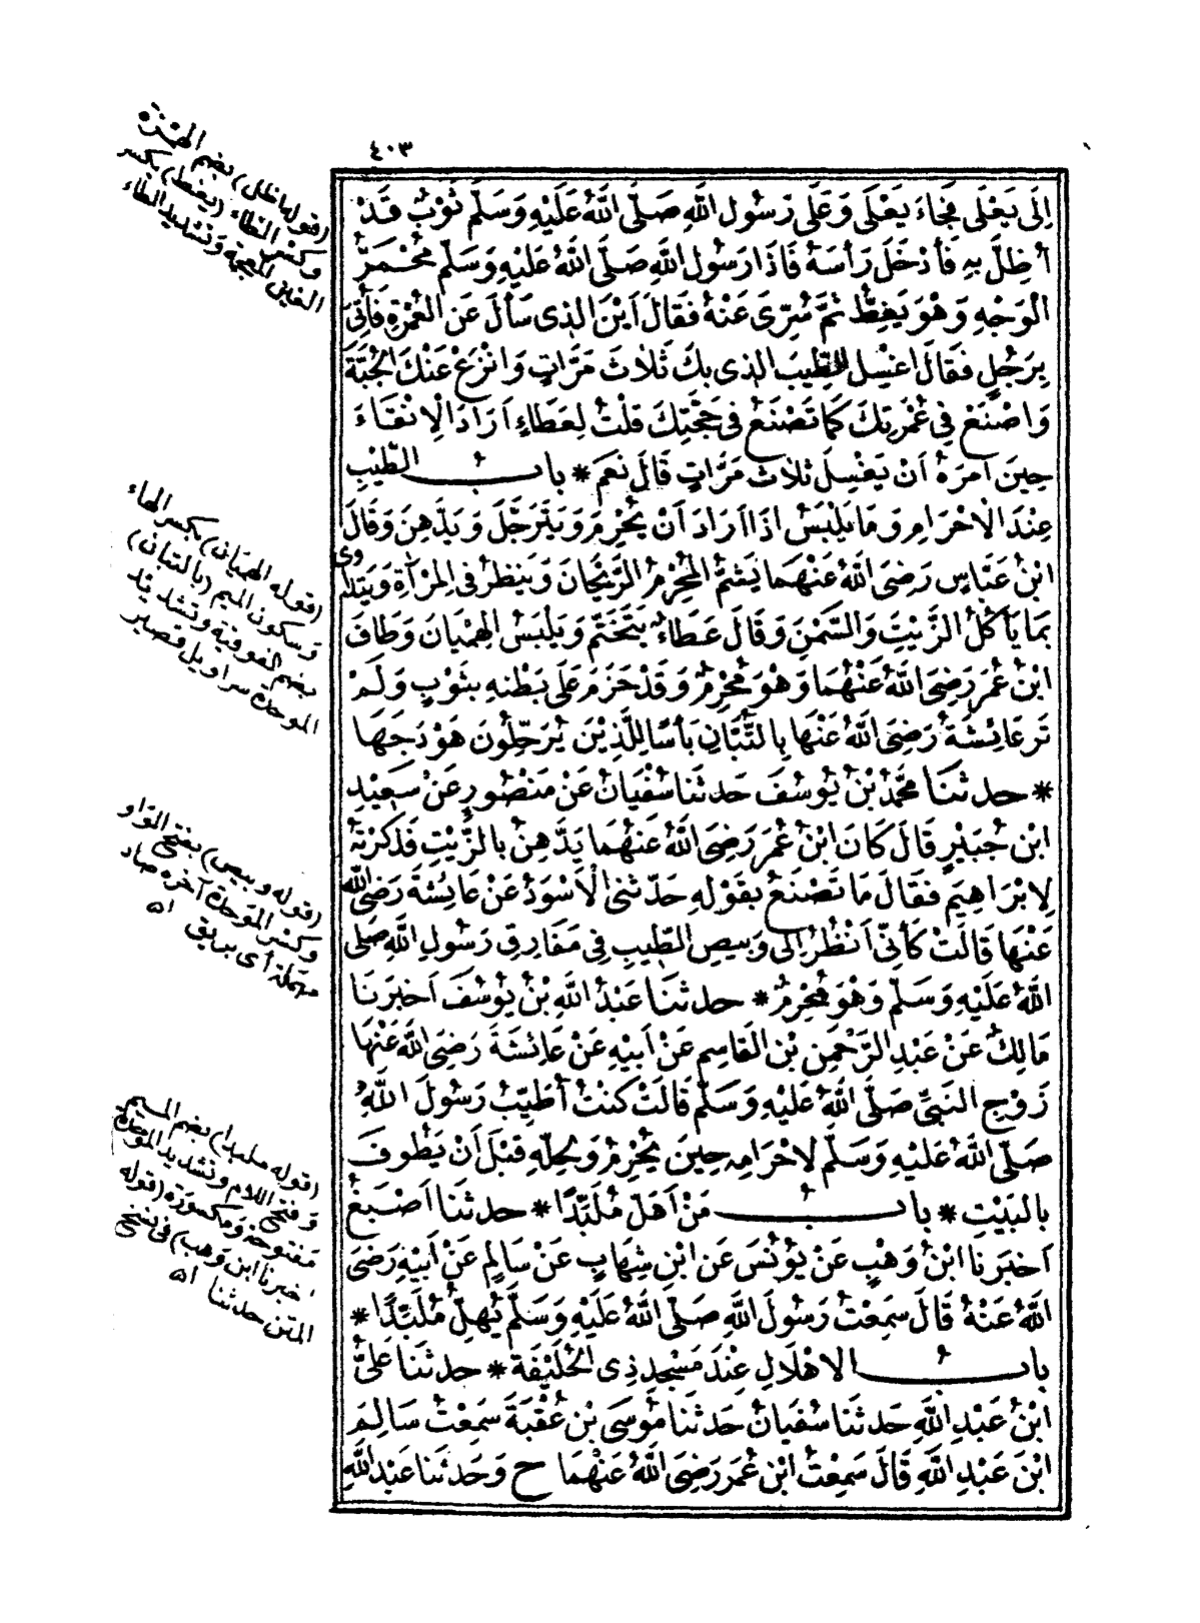 ٤٠٣
اِلَى يَعْلَى فَجَاءَ يَعْلَى وَعَلَى رَسُولِ اللّٰهِ صَلَّى اللّٰهُ عَلَيْهِ وَسَلَّمَ ثَوْبٌ قَدْ
اُظِلَّ بِهِ فَأَدْخَلَ رَأْسَهُ فَاذَا رَسُولُ اللّٰهِ صَلَّى اللّٰهُ عَلَيْهِ وَسَلَّمَ مُحْمَرُّ
الْوَجْهِ وَهْوَ يَغِطُّ ثُمَّ سُرِّىَ عَنْهُ فَقَالَ اَيْنَ الَّذِى سَأَلَ عَنِ الْعُمْرَةِ فَأُتِىَ
بِرَجُلٍ فَقَالَ اغْسِلِ الطِّيبَ الَّذِى بِكَ ثَلَاثَ مَرَّاتٍ وَانْزِعْ عَنْكَ الْجُبَّةَ
وَاصْنَعْ فِى عُمْرَتِكَ كَمَا تَصْنَعُ فِى حَجَّتِكَ قُلْتُ لِعَطَاءٍ اَرَادَ الْاِنْقَاءَ
حِينَ اَمَرَهُ اَنْ يَغْسِلَ ثَلَاثَ مَرَّاتٍ قَالَ نَعَمْ * بابُ الطِّيْبِ
عِنْدَ الْاِحْرَامِ وَمَا يَلْبَسُ اذَا اَرَادَ اَنْ يُحْرِمَ وَيَتَرَجَّلَ وَيَدَّهِنَ وَقَالَ
ابْنُ عَبَّاسٍ رَضِىَ اللّٰهُ عَنْهُمَا يَشَمُّ الْمُحْرِمُ الرَّيْحَانَ وَيَنْظُرُ فِى الْمِرْآةِ وَيَتَدَاوَى
بِمَا يَأْكُلُ الزَّيْتِ وَالسَّمْنِ وَقَالَ عَطَاءٌ يَتَخَتَّمُ وَيَلْبَسُ الْهِمْيَانَ وَطَافَ
ابْنُ عُمَرَ رَضِىَ اللّٰهُ عَنْهُمَا وَهْوَ مُحْرِمٌ وَقَدْ حَزَمَ عَلَى بَطْنِهِ بِثَوْبٍ وَلَمْ
تَرَ عَائِشَةُ رَضِىَ اللّٰهُ عَنْهَا بِالتُّبَّانِ بَأْسًا لِلَّذِيْنَ يُرَحِّلُونَ هَوْدَجَهَا
* حدثنا مُحَمَّدُ بْنُ يُوسُفَ حَدثنا سُفْيَانُ عَنْ مَنْصُورٍ عَنْ سَعِيْدِ
ابْنِ جُبَيْرٍ قَالَ كَانَ ابْنُ عُمَرَ رَضِىَ اللّٰهُ عَنْهُمَا يَدَّهِنُ بِالزَّيْتِ فَذَكَرْتُهُ
لِاِبْرَاهِيمَ فَقَالَ مَا تَصْنَعُ بِقَوْلِهِ حَدّثنى الْاَسْوَدُ عَنْ عَائِشَةَ رَضِىَ اللّٰهُ
عَنْهَا قَالَتْ كَأَنِّى اَنْظُرُ اِلَى وَبِيصِ الطِّيبِ فِى مَفَارِقِ رَسُولِ اللّٰهِ صَلَّى
اللّٰهُ عَلَيْهِ وَسَلَّمَ وَهْوَ مُحْرِمٌ * حدثنا عَبْدُ اللّٰهِ بْنُ يُوسُفَ اَخبرَنا
مَالِكٌ عَنْ عَبْدِ الرَّحْمٰنِ بْنِ الْقَاسِمِ عَنْ اَبِيْهِ عَنْ عَائِشَةَ رَضِىَ اللّٰهُ عَنْهَا
زَوْجِ النَّبِىِّ صَلَّى اللّٰهُ عَلَيْهِ وَسَلَّمَ قَالَتْ كُنْتُ أُطَيِّبُ رَسُولَ اللّٰهِ
صَلَّى اللّٰهُ عَلَيْهِ وَسَلَّمَ لِاِحْرَامِهِ حِينَ يُحْرِمُ وَلِحِلِّهِ قَبْلَ اَنْ يَطُوفَ
بِالْبَيْتِ * بابُ مَنْ اَهَلَّ مُلَبِّدًا * حدثنا اَصْبَغُ
اَخبَرَنا ابْنُ وَهْبٍ عَنْ يُوْنُسَ عَنِ ابْنِ شِهَابٍ عَنْ سَالِمٍ عَنْ اَبِيْهِ رَضِىَ
اللّٰهُ عَنْهُ قَالَ سَمِعْتُ رَسُولَ اللّٰهِ صَلَّى اللّٰهُ عَلَيْهِ وَسَلَّمَ يُهِلُّ مُلَبِّدًا *
بابُ الاِهْلَالِ عِنْدَ مَسْجِدِ ذِى الْحُلَيْفَةِ * حدثنا عَلِىُّ
ابْنُ عَبْدِ اللّٰهِ حَدثنا سُفْيَانُ حَدثنا مُوسَى بْنُ عُقْبَةَ سَمِعْتُ سَالِمَ
ابْنَ عَبْدِ اللّٰهِ قَالَ سَمِعْتُ ابْنَ عُمَرَ رَضِىَ اللّٰهُ عَنْهُمَا ح وَحَدثنا عَبْدُ اللّٰهِ
(قوله اظل) بضم الهمزة
وكسر الظاء (يغط) بكسر
الغين المعجمة وتشديد الطاء
(قوله الهميان) بكسر الهاء
وسكون الميم (بالتبان)
بضم الفوقية وتشديد
الموحدة سراويل قصير
(قوله وبيص) بفتح الواو
وكسر الموحدة آخره صاد
مهملة أى بريق اه
(قوله ملبدا) بضم الميم
وفتح اللام وتشديد الموحدة
مفتوحة ومكسورة (قوله
اخبرنا ابن وهب) فى نسخ
المتن حدثنا اه